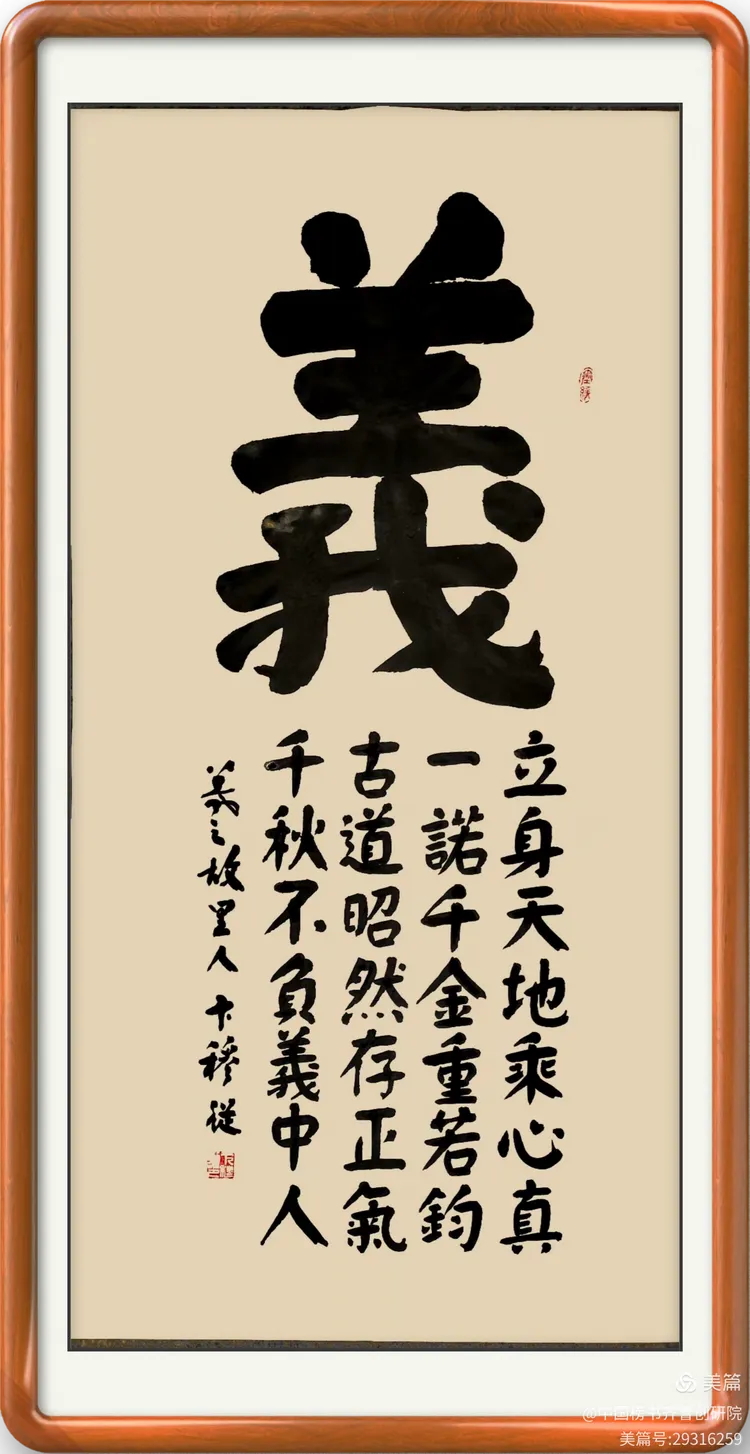 義
立身天地乘心真
一諾千金重若鈞
古道昭然存正氣
千秋不負義中人
羲之故里人卞穆從
美篇
@中国榜书齐鲁创研院
美篇号:29316259